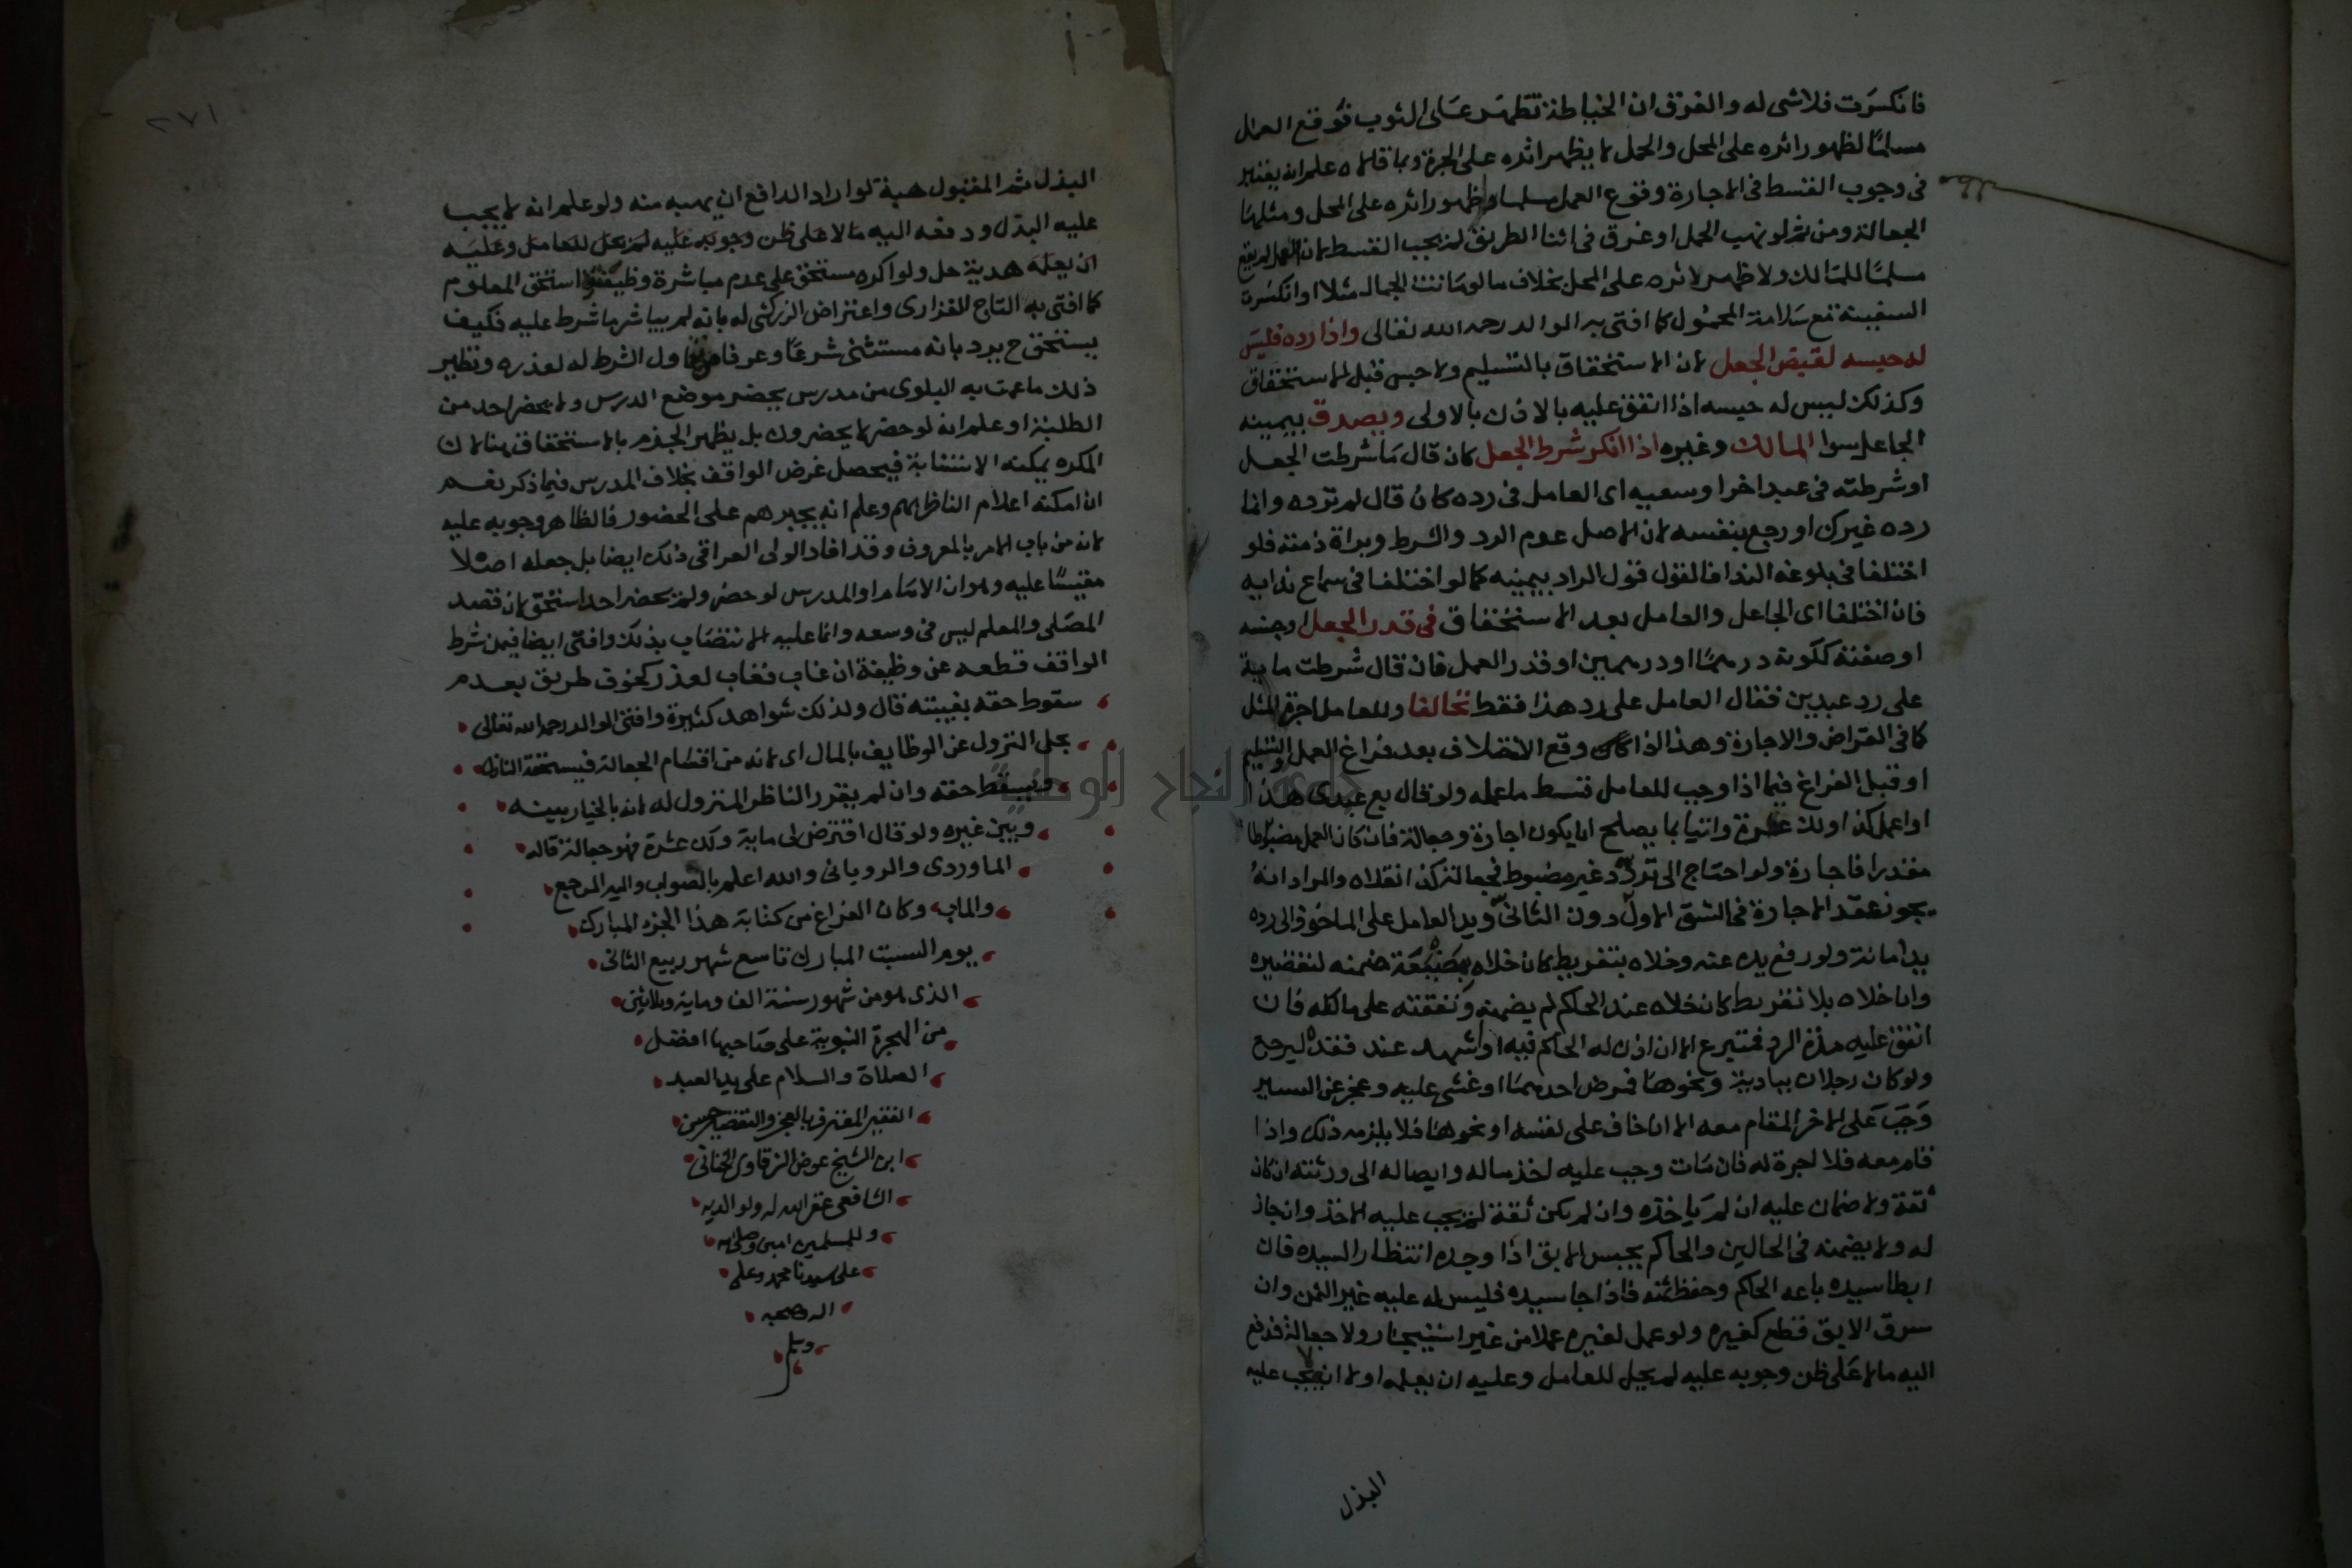 فانكسرت فلاشى له والفرق ان الخياطة تظهر على الثوب فوقع العمل
مسلما لظهور اثره على المحل والحمل لا يظهر اثره على الجرة وبما قالاه علم انه يعتبر
فى وجوب القسط فى الاجارة وقوع العمل مسلما وظهور اثره على المحل ومثلها
الجعالة ومن ثم لو نهب الحمل او غرق فى اثنا الطريق لم يجب القسط لان العمل لم يقع
مسلما للمالك ولا ظهر اثره على المحل بخلاف ما لو ماتت الجمال مثلا او انكسرت
السفينة مع سلامة المحمول كما افتى به الوالد رحمه الله تعالى واذا رده فليس
له حبسه لقبض الجعل لان الاستحقاق بالتسليم ولا حبس قبل الاستحقاق
وكذلك ليس له حبسه اذا انفق عليه بالاذن بالاولى ويصدق بيمينه
الجاعل سوا المالك وغيره اذا انكر شرط الجعل كان قال ما شرطت الجعل
او شرطته فى عبد اخر او سعيه اى العامل فى رده كان قال لم ترده وانما
رده غيرك او رجع بنفسه لان الاصل عدم الرد والشرط وبراة ذمته فلو
اختلفا فى بلوغه الندا فالقول قول الراد بيمينه كما لو اختلفا فى سماع ندايه
فان اختلفا اى الجاعل والعامل بعد الاستحقاق فى قدر الجعل او جنسه
او صفته ككونه درهما او درهمين او قدر العمل فان قال شرطت ماية
على رد عبدين فقال العامل على رد هذا فقط تحالفا وللعامل اجرة المثل
كما فى القراض والاجارة وهذا اذا كان وقع الاختلاف بعد فراغ العمل والتسليم
او قبل الفراغ فيما اذا وجب للعامل قسط ما عمله ولو قال بع عبدى هذا
او اعمل كذا ولك عشرة واتيا بما يصلح ان يكون اجارة وجعالة فان كان العمل مضبوطا
مقدرا فاجارة ولو احتاج الى تردد غير مضبوط فجعالة كذا نقلاه والمراد انه
يجوز عقد الاجارة فى الشق الاول دون الثانى ويد العامل على الماخوذ الى رده
يد امانة ولو رفع يده عنه وخلاه بتفريط كان خلاه بمضيعة ضمنه لتقصيره
وان خلاه بلا تفريط كان خلاه عند الحاكم لم يضمنه ونفقته على مالكه فان
انفق عليه مدة الرد فمتبرع الا ان اذن له الحاكم فيه او اشهد عند فقده ليرجع
ولو كان رجلان ببادية ونحوها فمرض احدهما او غشى عليه وعجز عن السير
وجب على الاخر المقام معه الا ان خاف على نفسه او نحوها فلا يلزمه ذلك واذا
قام معه فلا اجرة له فان مات وجب عليه اخذ ماله وايصاله الى ورثته ان كان
ثقة ولا ضمان عليه ان لم ياخذه وان لم يكن ثقة لم يجب عليه الاخذ وان جاز
له ولا يضمنه فى الحالين والحاكم يحبس الابق اذا وجده انتظارا لسيده فان
ابطا سيده باعه الحاكم وحفظ ثمنه فاذا جا سيده فليس له عليه غير الثمن وان
سرق الابق قطع كغيره ولو عمل لغيره عملا من غير استيجار ولا جعالة فدفع
اليه مالا على ظن وجوبه عليه لم يحل للعامل وعليه ان يعلمه اولا انه لا يجب عليه
البذل
٢٧١
البذل ثم المقبول هبة لو اراد الدافع ان يهبه منه ولو علم انه لا يجب
عليه البذل ودفعه اليه مالا على ظن وجوبه عليه لم يحل للعامل وعليه
ان يعلمه هدية حل ولو اكره مستحق على عدم مباشرة وظيفته استحق المعلوم
كما افتى به التاج الفزارى واعتراض الزركشى له بانه لم يباشر ما شرط عليه فكيف
يستحق ح يرد بانه مستثنى شرعا وعرفا من تناول الشرط له لعذره ونظير
ذلك ما عمت به البلوى من مدرس يحضر موضع الدرس ولا يحضر احد من
الطلبة او علم انه لو حضر لا يحضرون بل يظهر الجزم بالاستحقاق هنا لان
المكره يمكنه الاستنابة فيحصل غرض الواقف بخلاف المدرس فيما ذكر نعم
ان امكنه اعلام الناظر بهم وعلم انه يجبرهم على الحضور فالظاهر وجوبه عليه
لانه من باب الامر بالمعروف وقد افاد الولى العراقى ذلك ايضا بل جعله اصلا
مقيسا عليه وهو ان الامام او المدرس لو حضر ولم يحضر احد استحق لان قصد
المصلى والمعلم ليس فى وسعه وانما عليه الانتصاب بذلك وافتى ايضا فيمن شرط
الواقف قطعه عن وظيفة ان غاب فغاب لعذر كخوف طريق بعدم
سقوط حقه بغيبته قال ولذلك شواهد كثيرة وافتى الوالد رحمه الله تعالى
بحل النزول عن الوظايف بالمال اى لانه من اقسام الجعالة فيستحقه النازل
ويسقط حقه وان لم يقرر الناظر المنزول له لانه بالخيار بينه
وبين غيره ولو قال اقترض لى ماية ولك عشرة فهو جعالة قاله
الماوردى والرويانى والله اعلم بالصواب واليه المرجع
والماب وكان الفراغ من كتابة هذا الجزء المبارك
يوم السبت المبارك تاسع شهر ربيع الثانى
الذى هو من شهور سنة الف وماية وثلاثين
من الهجرة النبوية على صاحبها افضل
الصلاة والسلام على يد العبد
الفقير المعترف بالعجز والتقصير حسن
ابن الشيخ عوض الزرقاوى الحنانى
الشافعى غفر الله له ولوالديه
وللمسلمين امين وصلى الله
على سيدنا محمد وعلى
اله وصحبه
وسلم
جامعة النجاح الوطنية